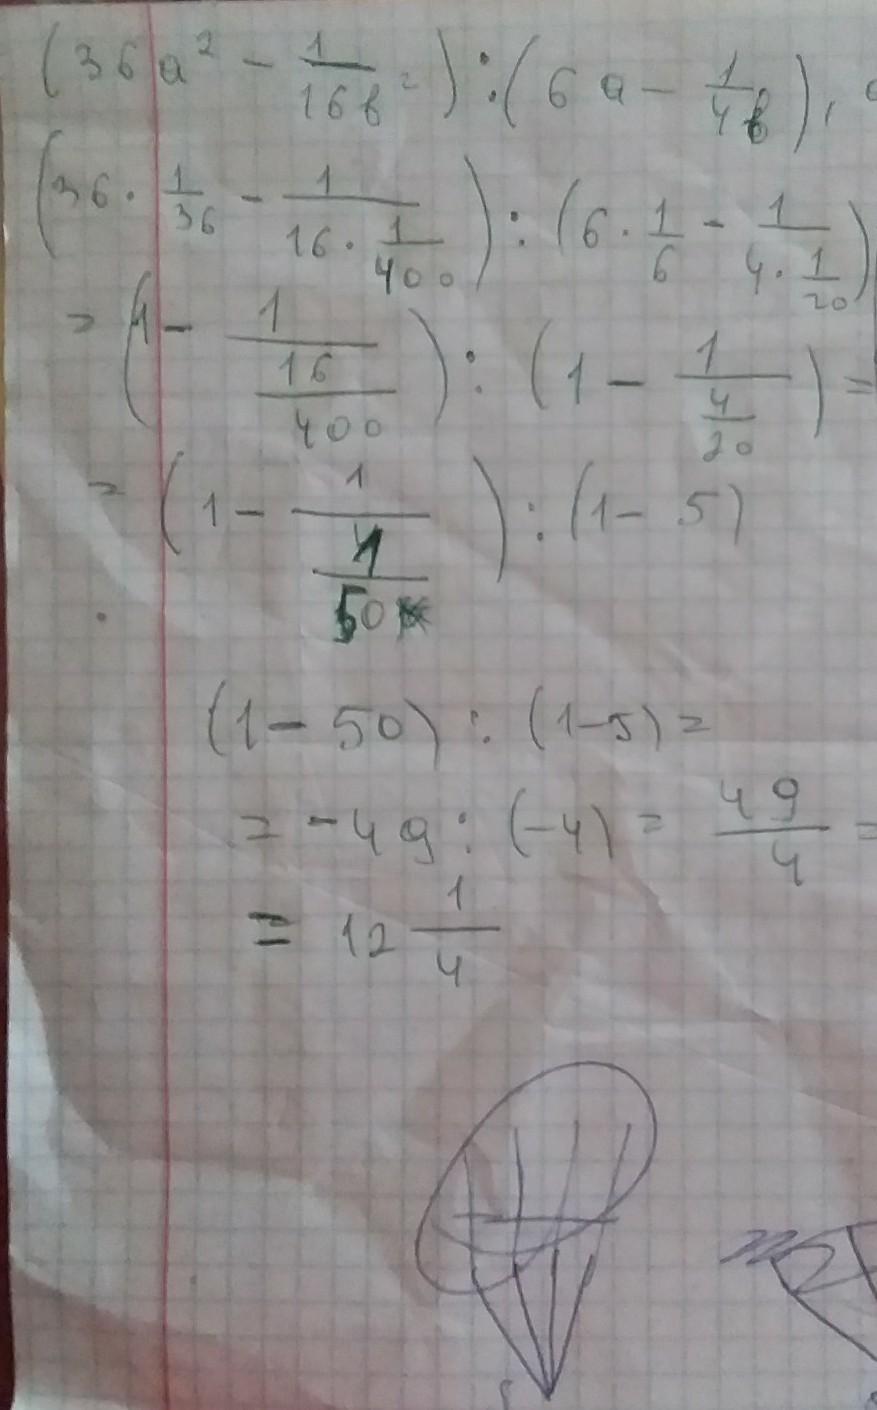 (36a² - 1/16b²) : (6a - 1/4b),
(36 · 1/36 - 1/(16 · 1/400)) : (6 · 1/6 - 1/(4 · 1/20))
= (1 - 1/(16/400)) : (1 - 1/(4/20)) =
= (1 - 1/(1/50)) : (1 - 5)
(1 - 50) : (1-5) =
= -49 : (-4) = 49/4 =
= 12 1/4